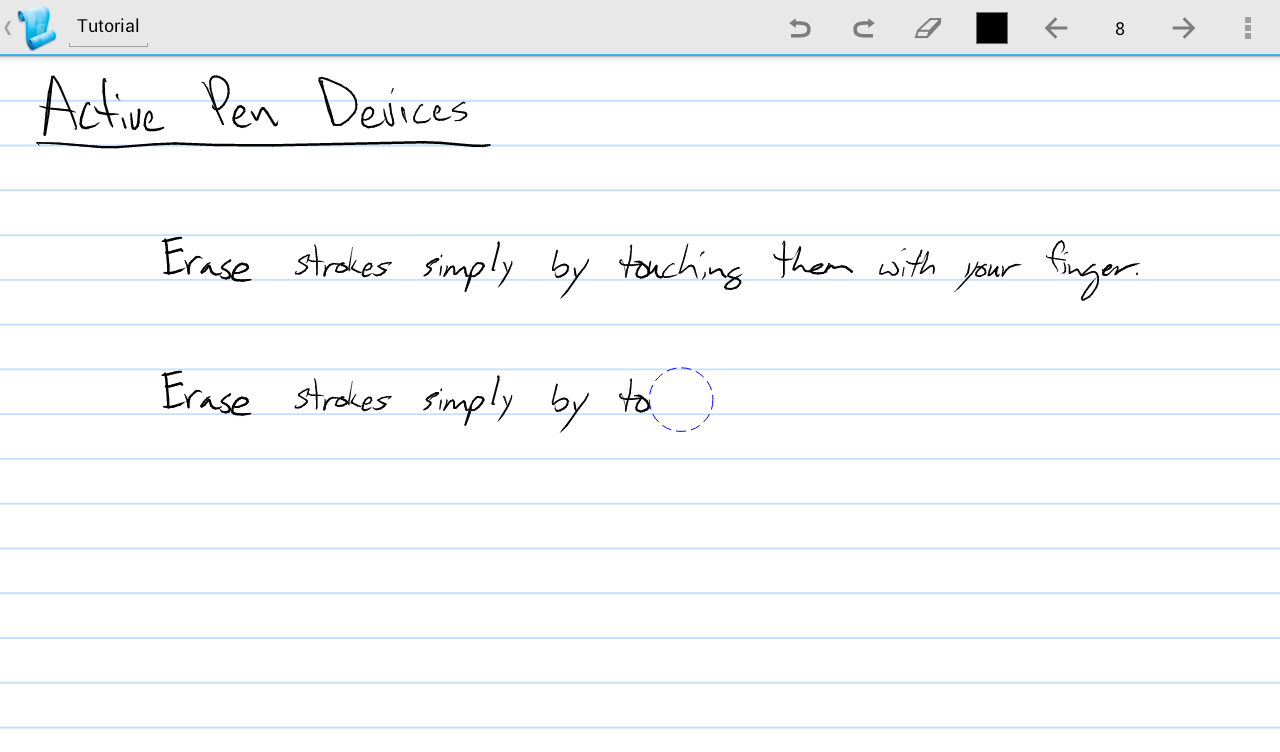 Tutorial
8
Active Pen Devices
Erase strokes simply by touching them with your finger.
Erase strokes simply by to